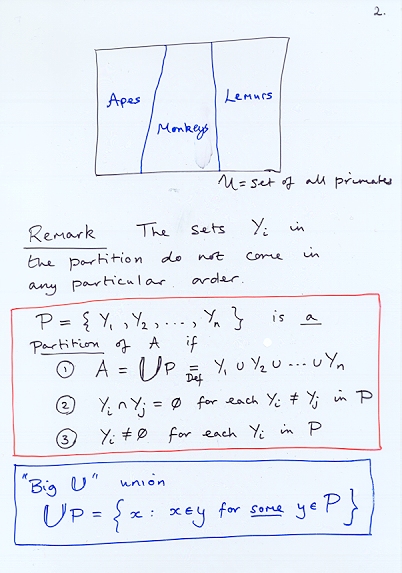 2.
Apes
Monkeys
Lemurs
U = set of all primates
Remark The sets Yi in
the partition do not come in
any particular order.
P = { Y1, Y2, ..., Yn } is a
partition of A if
① A = ⋃P =Def Y1 ∪ Y2 ∪ ... ∪ Yn
② Yi ∩ Yj = ∅ for each Yi ≠ Yj in P
③ Yi ≠ ∅ for each Yi in P
"Big U" union
⋃P = { x : x∈y for some y∈P }